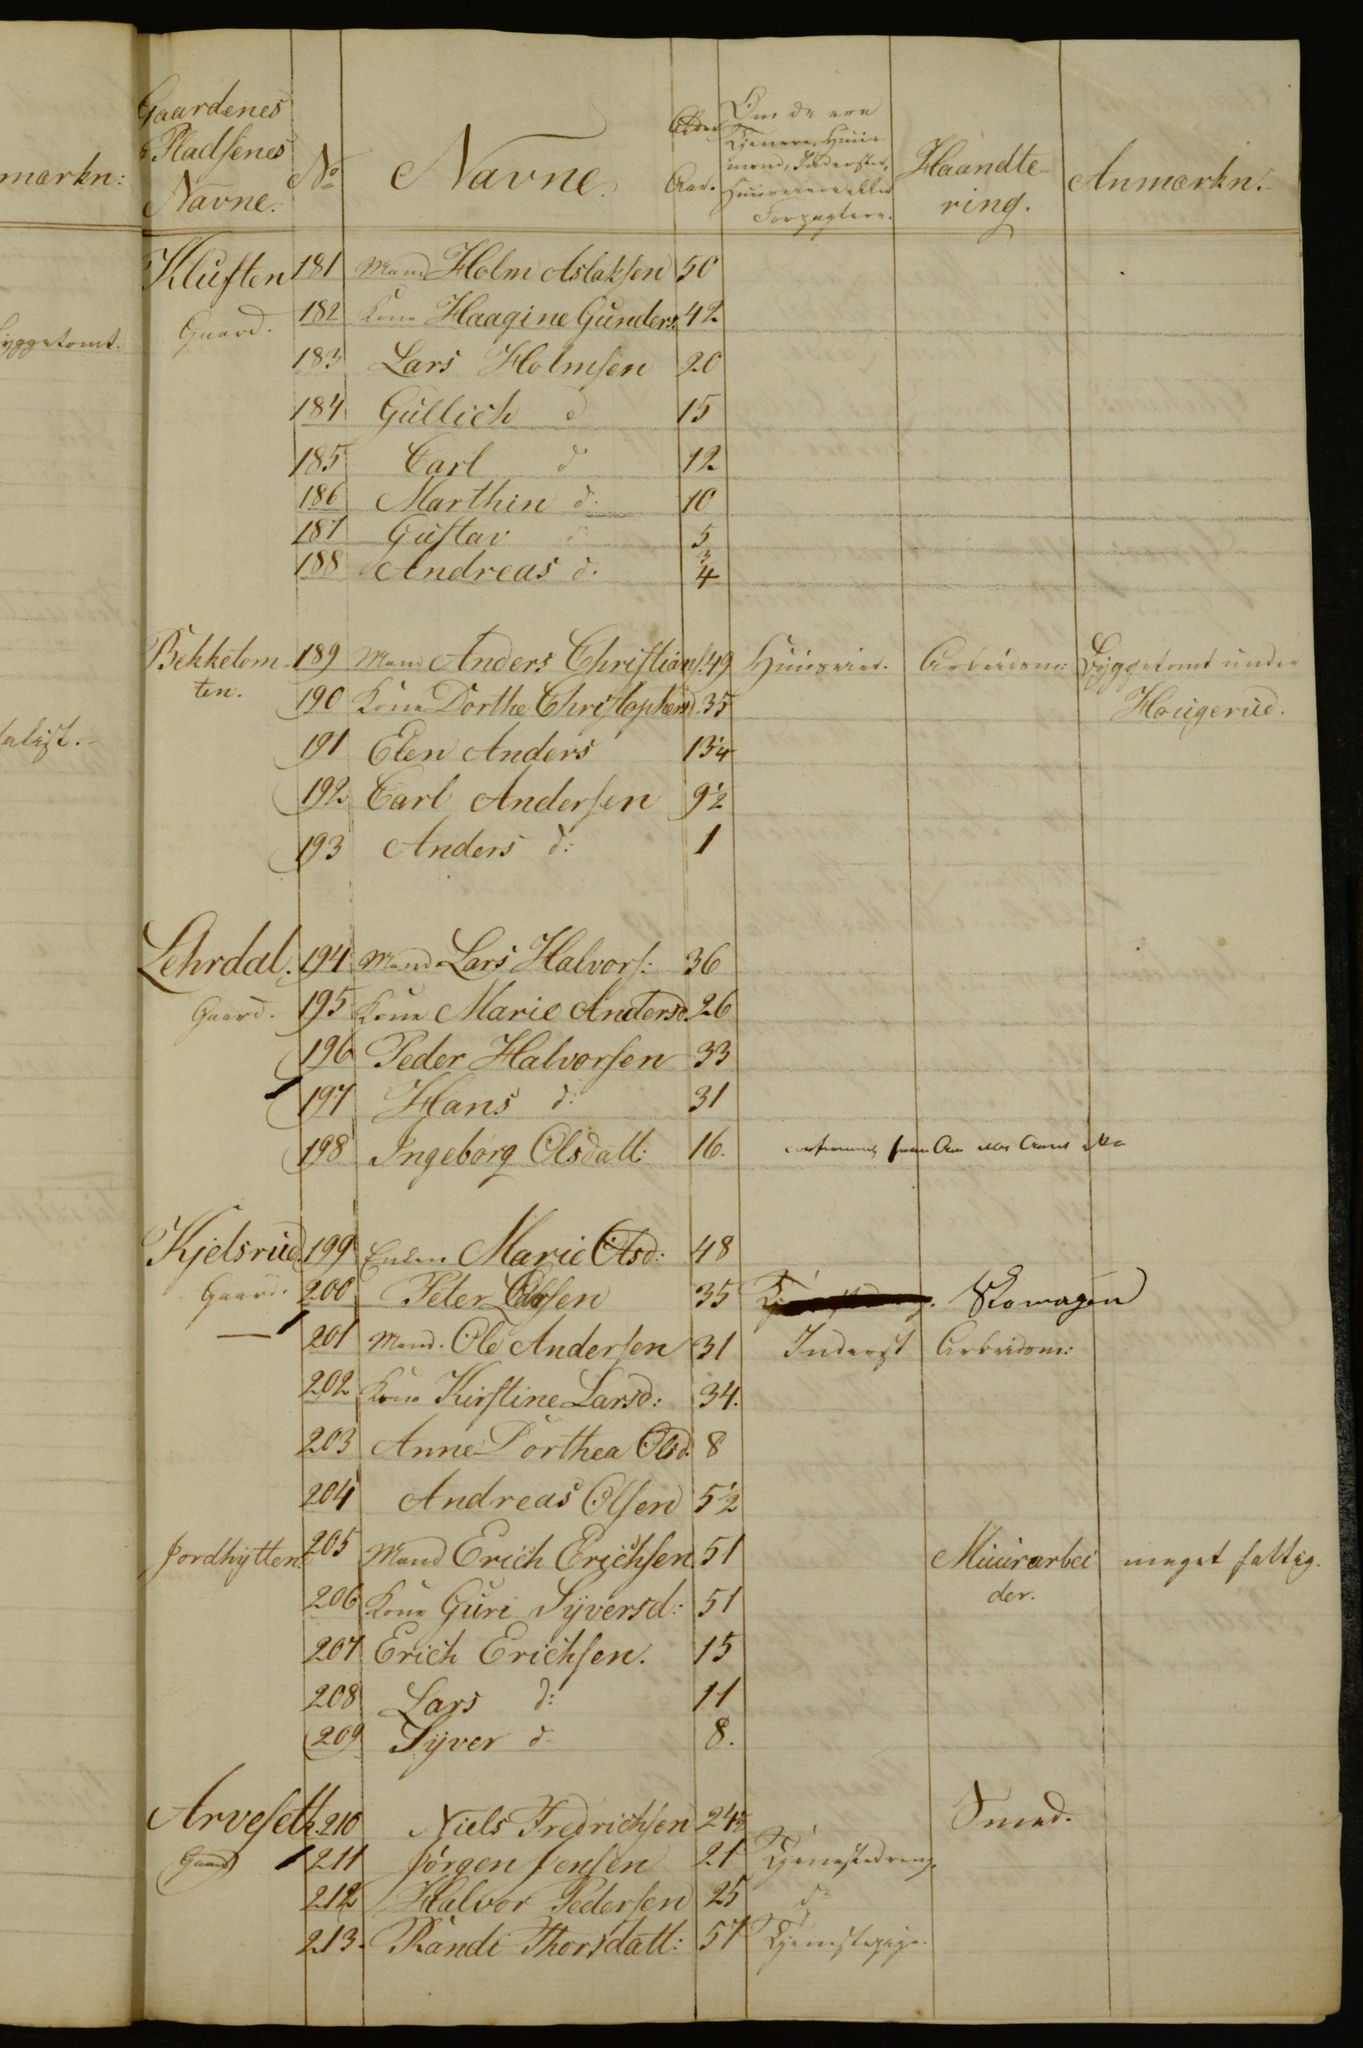 mærkn:
Byggetomt.
Gaardenes
& Pladsenes
Navne.
No
Navne.
Alder
Aar.
Om de ere
Tjenere, Huus
mænd, Inderster,
Forpagtere.
Haandte-
ring.
Anmærkn:
Kluften 181 Mand Holm Aslaksen 50
Gaard. 182 Kone Haagine Gunders: 42
183 Lars Holmsen 20
184 Gullich d 15
185 Carl d 12
186 Marthin d. 10
187 Gustav d 5
188 Andreas d. 3 4
Bekketom- 189 Mand Anders Christians. 49 Huusvild. Arbeidsm: Byggetomt under
ten. 190 Kone Dorthe Christophersd. 35 Hougerud.
191 Elen Anders 13 1/4
192 Carl Andersen 9 1/2
193 Anders d: 1
Lehrdal. 194 Mand Lars Halvors: 36
Gaard. 195 Kone Marie Andersd. 26
196 Peder Halvorsen 33
197 Hans d: 31
198 Ingeborg Olsdatt: 16.
Kjelsrud. 199 Enken Marie Olsd: 48
Gaard. 200 Peter Olsen 35 Skomager
201 Mand. Ole Andersen 31 Inderst Arbeidsm:
202 Kone Kirstine Larsd: 34.
203 Anne Dorthea Olsd. 8
204 Andreas Olsen 5 1/2
Jordhytten. 205 Mand Erich Erichsen. 51 Muurarbei meget fattig.
206 Kone Guri Syversd: 51 der.
207 Erich Erichsen. 15
208 Lars d: 11
209 Syver d 8.
Arveseth. 210 Niels Fredrichsen 24 Smed.
Gaard 211 Jörgen Jensen 21 Tjenestedreng.
212 Halvor Pedersen 25 do
213. Randi Thorsdatt: 57 Tjenestepige.